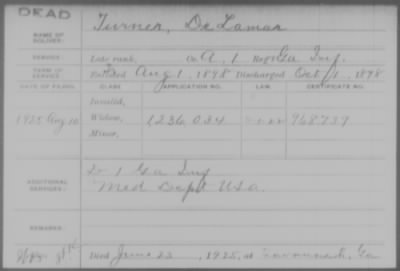 DEAD
NAME OF SOLDIER: Turner, De Lamar
SERVICE: Late rank, Co. A, 1 Reg't Ga Inf.
TERM OF SERVICE: Enlisted Aug 1, 1898 Discharged Oct 1, 1898
DATE OF FILING. CLASS. APPLICATION NO. LAW. CERTIFICATE NO.
Invalid,
1925 Aug 10 Widow, 1236034 968739
Minor,
ADDITIONAL SERVICES: D 1 Ga Inf
Med Dept USA.
REMARKS:
Died June 22, 1925, at Savannah, Ga